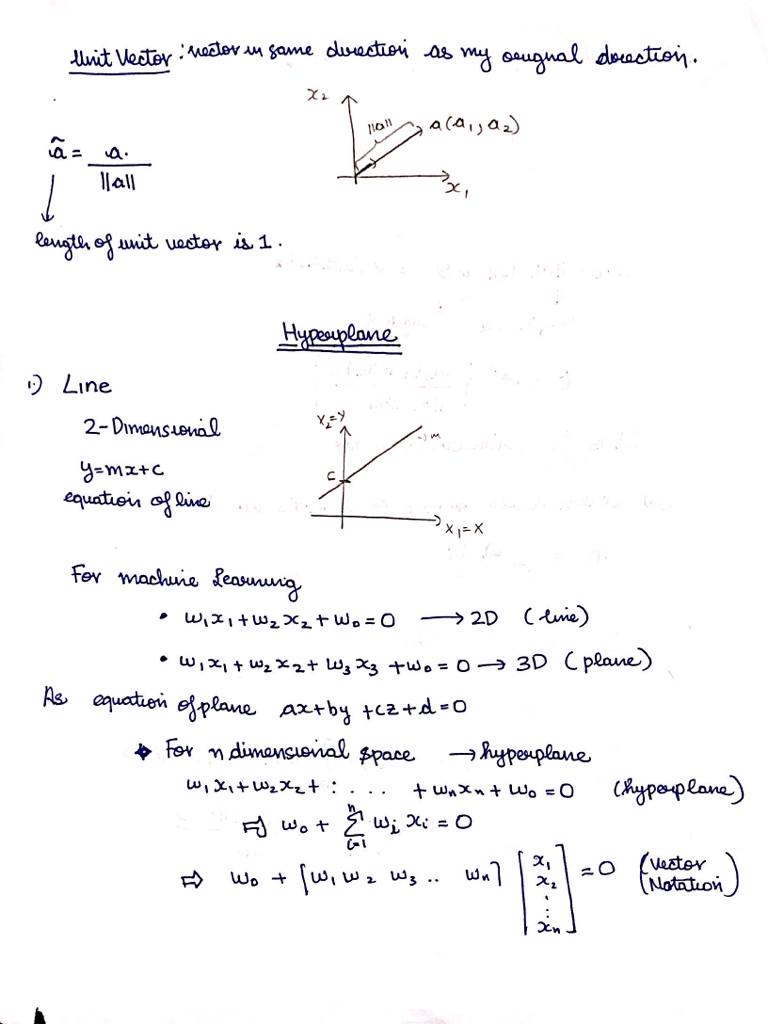 Unit Vector : vector in same direction as my orignal direction.
x₂
||a||
a(a₁, a₂)
x₁
ã = a / ||a||
length of unit vector is 1.
Hyperplane
1.) Line
2-Dimensional
y=mx+c
equation of line
x₂=y
→m
c
x₁=x
For machine Learning
• w₁x₁+w₂x₂+w₀=0 → 2D (line)
• w₁x₁+w₂x₂+w₃x₃+w₀=0 → 3D (plane)
As equation of plane ax+by+cz+d=0
For n dimensional space → hyperplane
w₁x₁+w₂x₂+ : . . . +wₙxₙ+w₀=0 (hyperplane)
⇒ w₀ + ∑ⁿᵢ₌₁ wᵢxᵢ = 0
⇒ w₀ + [w₁ w₂ w₃ .. wₙ] [x₁ x₂ ⋮ xₙ] = 0 (Vector Notation)